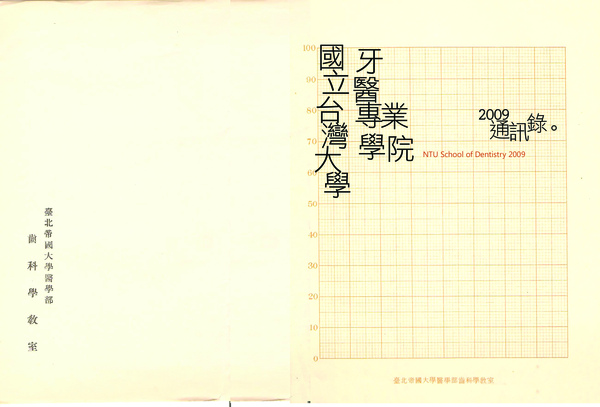 臺北帝國大學醫學部
齒科學教室
國立台灣大學
牙醫專業學院
2009
通訊錄。
NTU School of Dentistry 2009
100
90
80
70
60
50
40
30
20
10
0
臺北帝國大學醫學部齒科學教室